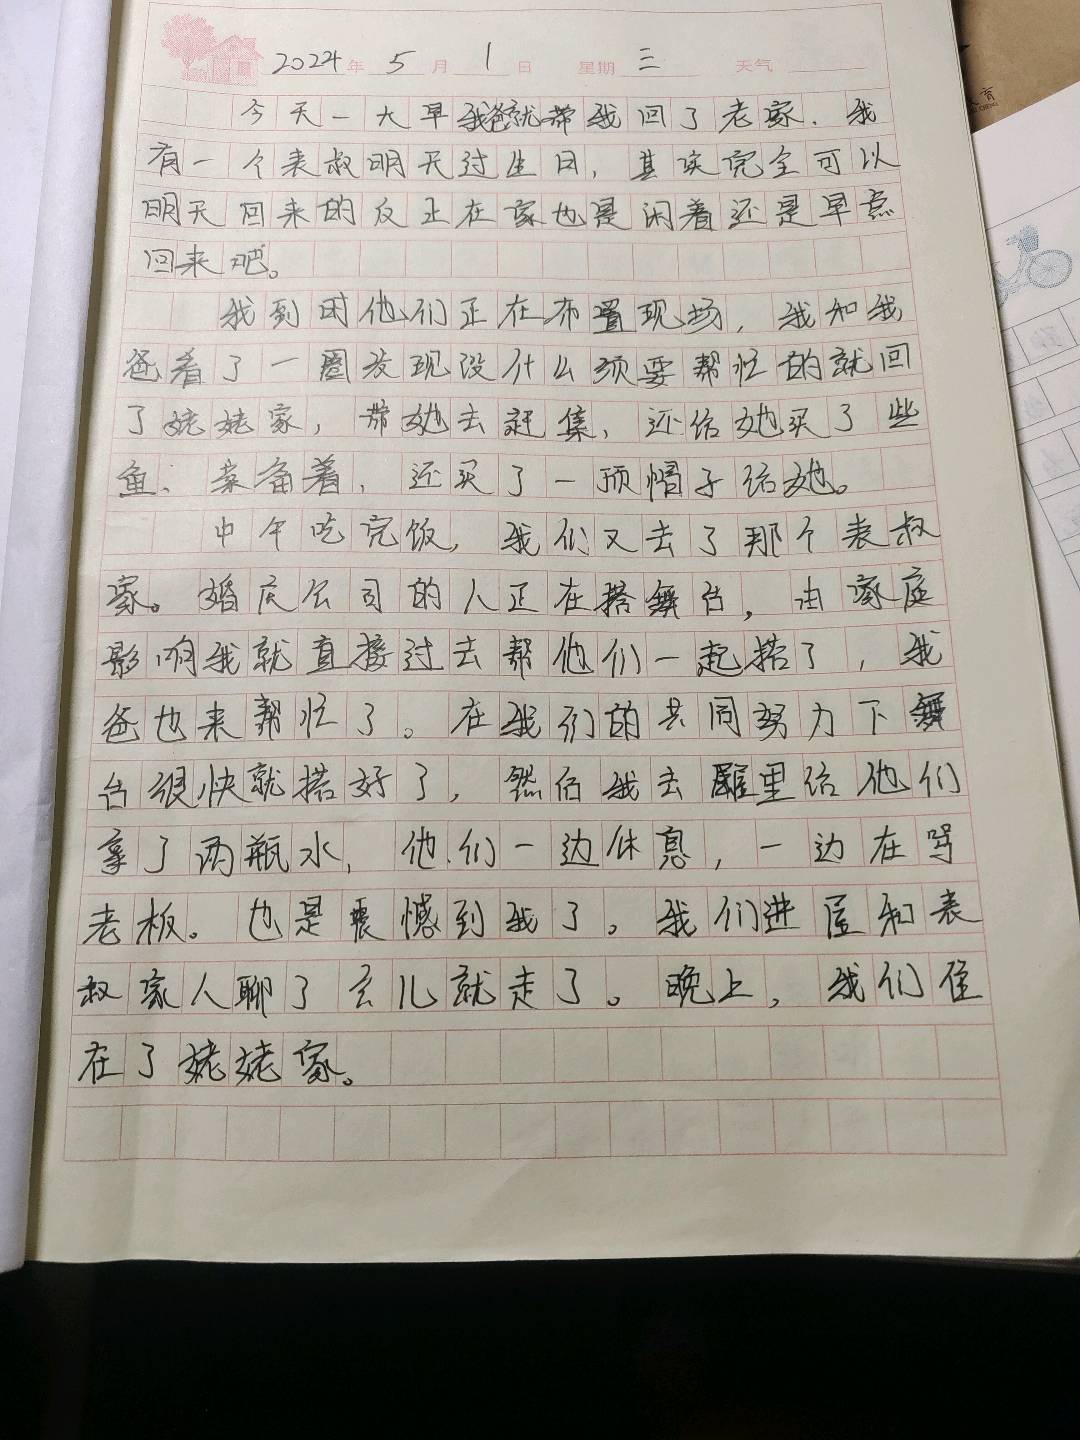 2024年 5月 1日 星期三 天气
今天一大早我爸就带我回了老家.我
有一个表叔明天过生日,其实完全可以
明天回来的反正在家也是闲着还是早点
回来吧。
我到时他们正在布置现场,我和我
爸看了一圈发现没什么须要帮忙的就回
了姥姥家,带她去赶集,还给她买了些
鱼、菜备着,还买了一顶帽子给她。
中午吃完饭,我们又去了那个表叔
家。婚庆公司的人正在搭舞台,由家庭
影响我就直接过去帮他们一起搭了,我
爸也来帮忙了。在我们的共同努力下舞
台很快就搭好了,然后我去屋里给他们
拿了两瓶水,他们一边休息,一边在骂
老板。也是震憾到我了。我们进屋和表
叔家人聊了会儿就走了。晚上,我们住
在了姥姥家。
育